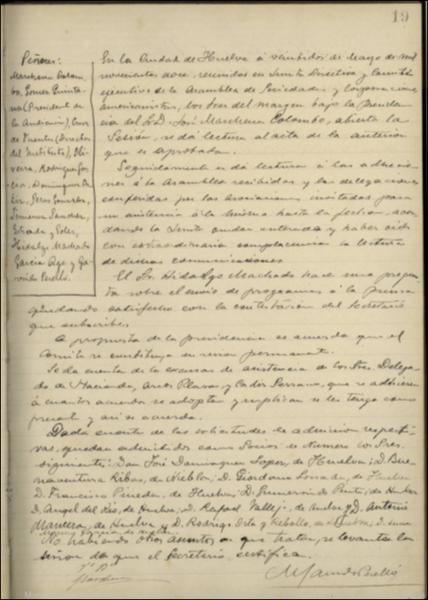 19
Señores:
Marchena Colom-
bo, Gomez Quinta-
na (Presidente de
la Audiencia), Cruz
de Fuentes (Director
del Instituto), Oli-
veira, Rodriguez Gar-
cia, Dominguez Or-
Siurot, Jimenez,
Estrada y Soler,
Hidalgo Machado
Garcia Age y Ga-
rrido Perelló.
En la Ciudad de Huelva á veintidos de Mayo de mil
novecientos doce, reunidas en Junta Directiva y Comité
ejecutivo de la Asamblea de Sociedades y Corporaciones
americanistas, los Sres del margen bajo la Presiden-
cia del Sr D. José Marchena Colombo, abierta la
Sesión, se dá lectura al acta de la anterior
que es aprobada.
Seguidamente se dá lectura á las adhesio-
nes á la Asamblea recibidas y las delegaciones
conferidas por las Asociaciones invitadas para
su asistencia á la misma hasta la fecha, acor-
dando la Junta quedar enterada y haber oido
con extraordinaria complacencia la lectura
de dichas comunicaciones.
El Sr. Hidalgo Machado hace una pregun-
ta sobre el envio de programas á la prensa
quedando satisfecho con la contestación del Secretario
que suscribe.
A propuesta de la presidencia se acuerda que el
Comité se constituya en sesion permanente.
Se da cuenta de la excusa de asistencia de los Sres. Delega-
do de Hacienda, Arco, Plavas y Cadiz Serrano, que se adhieren
á cuantos acuerdos se adopten y suplican se les tenga como
presentes y asi se acuerda.
Dada cuenta de las solicitudes de admision respecti-
vas, quedan admitidos como Socios de Numero los Sres.
siguientes: Don José Dominguez Lopez, de Huelva; D. Bue-
naventura Ribas, de Niebla; D. Giordano Losada, de Huelva
D. Francisco Pineda, de Huelva; D. de Huelva
D. Angel del Rio, de Huelva; D. Rafael Vallejo, de Huelva y D. Antonio
de Huelva y D. Rodrigo Orta y Rebollo, de Huelva; D. Juan
No habiendo otros asuntos de que tratar, se levanta la
señon de que el Secretario, certifica.
Vº Bº